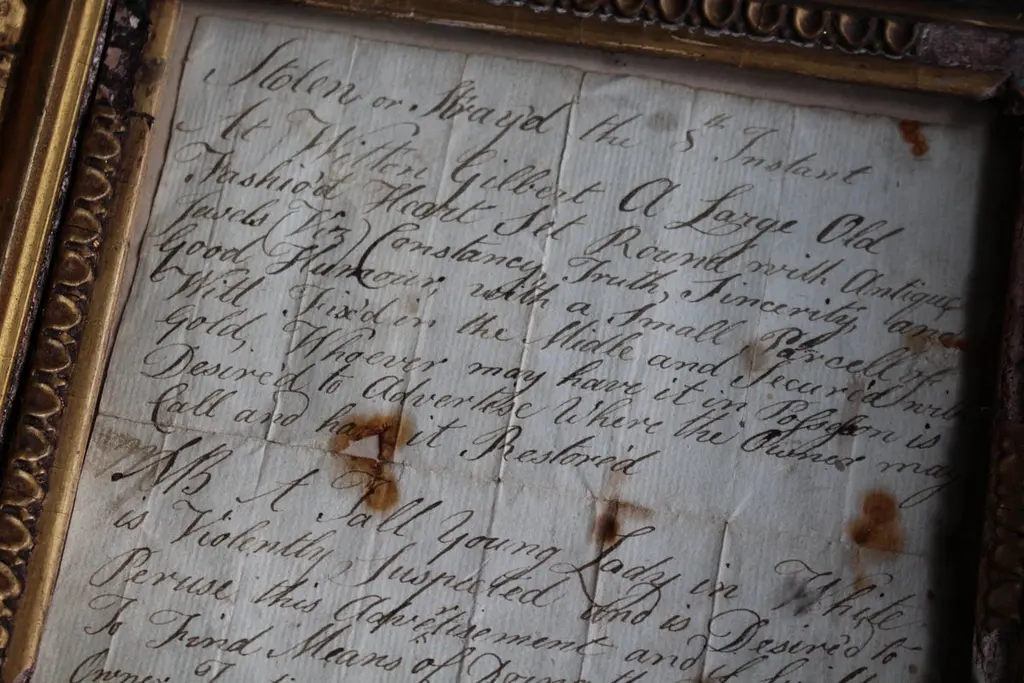 Stolen or Stray'd the 5th Instant
At Witton Gilbert A Large Old
Fashio'd Heart Set Round with Antique
Jewels (Viz) Constancy, Truth, Sincerity and
Good Humour, with a Small Parcell of
Will Fix'd in the Middle and Secured with
Gold, Whoever may have it in Possession is
Desired to Advertise Where the Owner may
Call and have it Restored
NB A Tall Young Lady in White
is Violently Suspected and is Desired to
Peruse this Advertisement and
To Find Means of Doing the
Owner